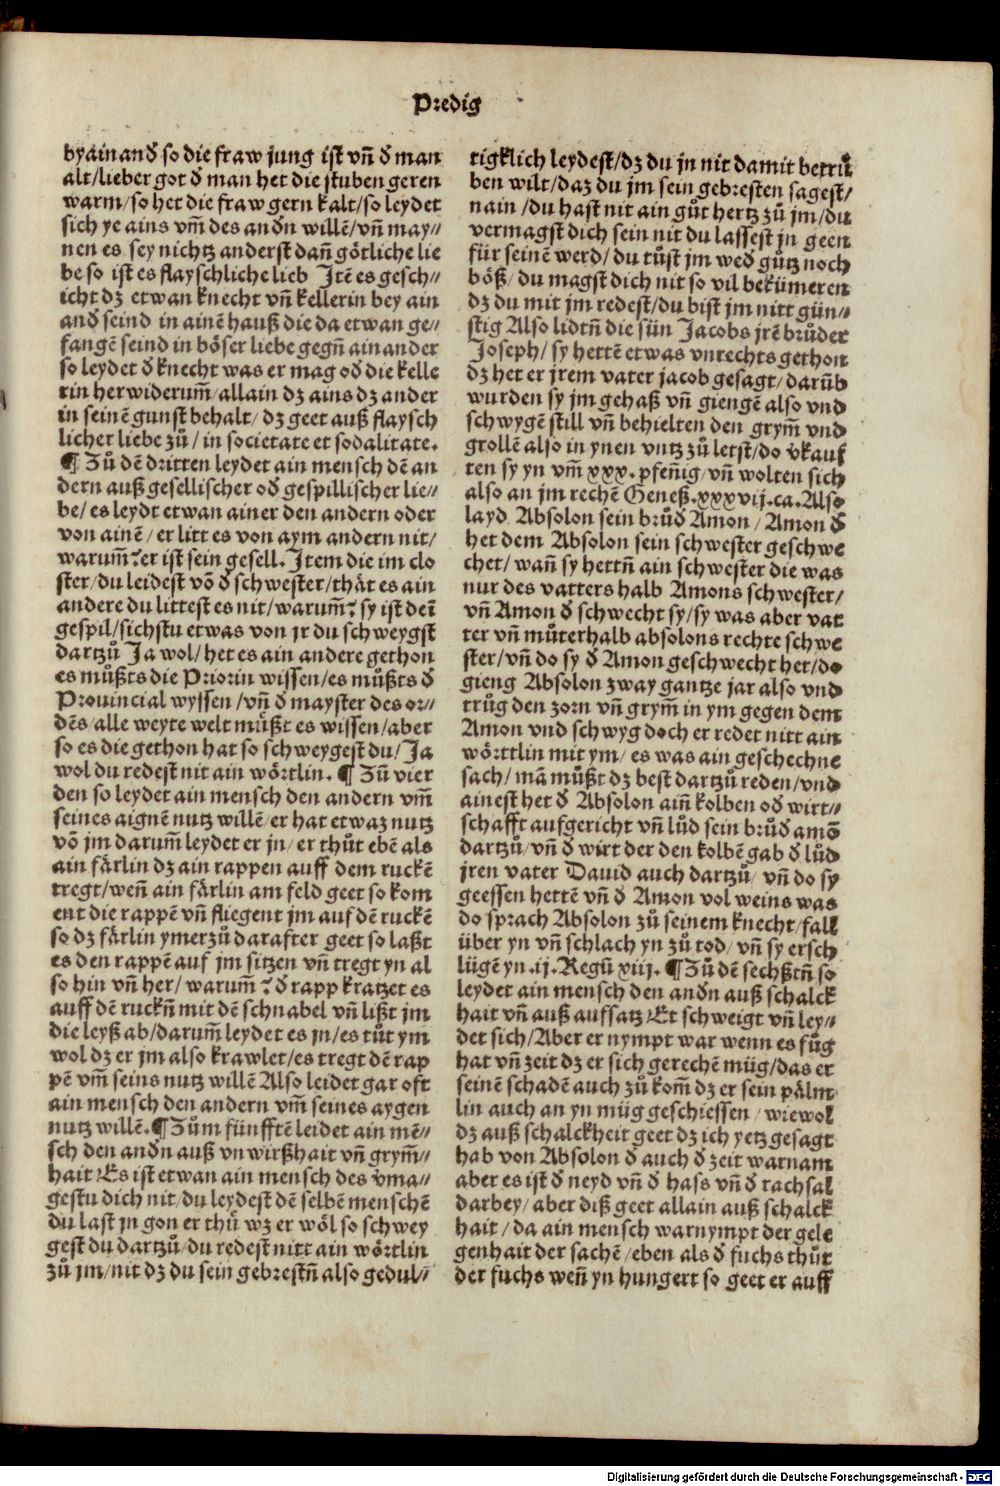 Predig
byainanđ so die fraw jung ist vñ đ man
alt/lieber got đ man het die stuben geren
warm/so het die fraw gern kalt/so leydet
sich ye ains vm̃ des anđn willē/vñ may⸗
nen es sey nichtz anderst dañ götliche lie
be so ist es flayschliche lieb Jtē es gesch⸗
icht dz etwan knecht vñ kellerin bey ain
anđ seind in ainē hauß die da etwan ge⸗
fangē seind in böser liebe gegñ ainander
so leydet đ knecht was er mag ođ die kelle
rin herwiderum̃/allain dz ains dz ander
in seinē gunst behalt/dz geet auß flaysch
licher liebe zů/in societate et sodalitate.
¶ Zů dē dritten leydet ain mensch dē an
dern auß gesellischer ođ gespillischer lie⸗
be/es leydt etwan ainer den andern oder
von ainē/er litt es von aym andern nit/
warum̃?er ist sein gesell.Jtem die im clo
ster/du leidest vō đ schwester/thät es ain
andere du littest es nit/warum̃? sy ist deĩ
gespil/sichstu etwas von jr du schweygst
dartzů Ja wol/het es ain andere gethon
es müßts die Priorin wissen/es müßts đ
Prouincial wyssen/vñ đ mayster des or⸗
dēs/alle weyte welt müßt es wissen/aber
so es die gethon hat so schweygest du/Ja
wol du redest nit ain wörtlin.¶ Zũ vier
den so leydet ain mensch den andern vm̃
seines aignē nutz willē/er hat etwaz nutz
vō jm darum̃ leydet er jn/er thůt ebē als
ain färlin dz ain rappen auff dem ruckē
tregt/weñ ain färlin am feld geet so kom
ent die rappē vñ fliegent jm auf dē ruckē
so dz färlin ymerzů darafter geet so laßt
es den rappē auf jm sitzen vñ tregt yn al
so hin vñ her/warum̃?đ rapp kratzet es
auff dē ruckñ mit dē schnabel vñ lißt jm
die leyß ab/darum̃ leydet es jn/es tůt ym
wol dz er jm also krawlet/es tregt dē rap
pē vm̃ seins nutz willē Also leidet gar oft
ain mensch den andern vm̃ seines aygen
nutz willē.¶Zům fünfftē leidet ain mē⸗
sch den anđn auß vnwirßhait vñ grym̃⸗
hait Es ist etwan ain mensch des v̄ma⸗
gestu dich nit/du leydest dē selbē menschē
du last jn gon er thů wz er wöl so schwey
gest du dartzů/du redest nitt ain wörtlin
zů jm/nit dz du sein gebrestñ also gedul⸗
tigklich leydest/dz du jn nit damit betrů
ben wilt/daz du jm sein gebresten sagest/
nain/du hast nit ain gůt hertz zů jm/du
vermagst dich sein nit du lassest jn geen
für seinē werd/du tůst jm weđ gůtz noch
böß/du magst dich nit so vil bekümeren
dz du mit jm redest/du bist jm nitt gün⸗
stig Also lidtñ die sün Jacobs jrē brůder
Joseph/sy hettē etwas vnrechts gethon
dz het er jrem vater jacob gesagt/darūb
wurden sy jm gehaß vñ giengē also vnd
schwygē still vñ behielten den grym̃ vnd
grollē also in ynen vntz zů letst/do v̄kauf
ten sy yn vm̃ xxx.pfeñig/vñ wolten sich
also an jm rechē Geneß.xxxvij.ca.Also
layd Absolon sein brůđ Amon/Amon đ
het dem Absolon sein schwester geschwe
chet/wañ sy hettñ ain schwester die was
nur des vatters halb Amons schwester/
vñ Amon đ schwecht sy/sy was aber vat
ter vñ můterhalb absolons rechte schwe
ster/vñ do sy đ Amon geschwecht het/do
gieng Absolon zway gantze jar also vnd
trůg den zorn vñ grym̃ in ym gegen dem
Amon vnd schwyg doch er redet nitt ain
wörttlin mit ym/es was ain geschechne
sach/mā můßt dz best dartzů reden/vnd
ainest het đ Absolon aiñ kolben ođ wirt⸗
schafft aufgericht vñ lůd sein brůđ amō
dartzů/vñ đ wirt der den kolbē gab đ lůd
jren vater Dauid auch dartzů/vñ do sy
geessen hettē vñ đ Amon vol weins was
do sprach Absolon zů seinem knecht/fall
über yn vñ schlach yn zů tod/vñ sy ersch
lügē yn.ij.Regũ xiij.¶Zů dē sechßtñ so
leydet ain mensch den anđn auß schalck
hait vñ auß aufsatz Et schweigt vñ ley⸗
det sich/Aber er nympt war wenn es fůg
hat vñ zeit dz er sich gerechē müg/das er
seinē schadē auch zů kom̃ dz er sein pälm
lin auch an yn müg geschiessen/wiewol
dz auß schalckheit geet dz ich yetz gesagt
hab von Absolon đ auch đ zeit warnam
aber es ist đ neyd vñ đ hass vñ đ rachsal
darbey/aber diß geet allain auß schalck
hait/da ain mensch warnympt der gele
genhait der sachē/eben als đ fuchs thůt
der fuchs weñ yn hungert so geet er auff
Digitalisierung gefördert durch die Deutsche Forschungsgemeinschaft - DFG